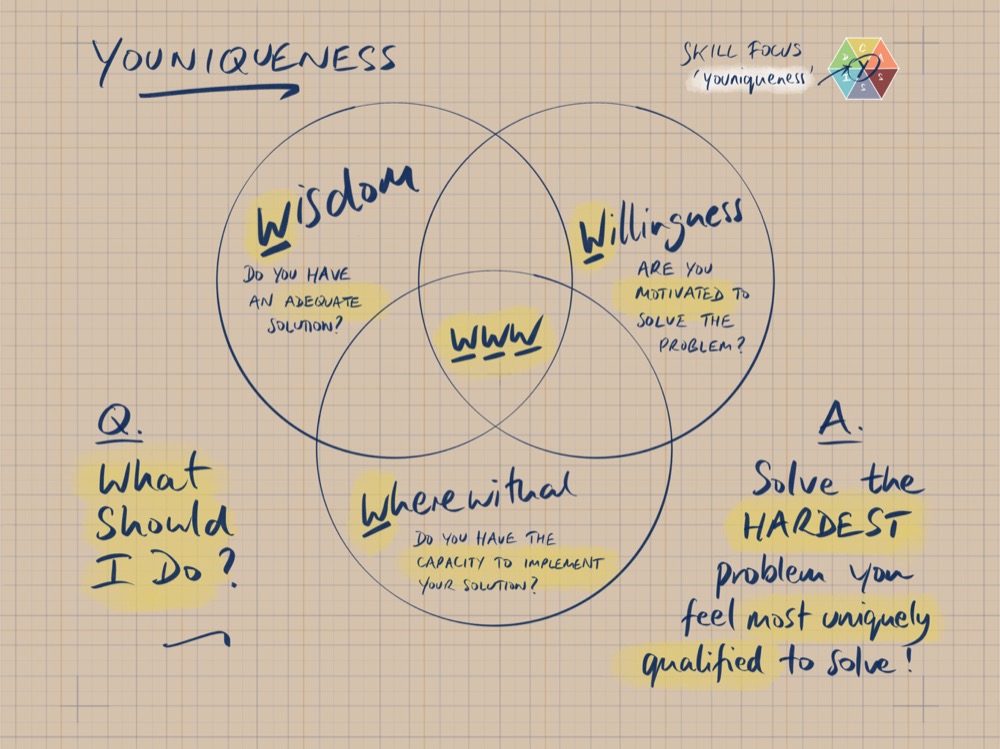 YOUNIQUENESS
SKILL FOCUS
'youniqueness'
Wisdom
DO YOU HAVE
AN ADEQUATE
SOLUTION?
Willingness
ARE YOU
MOTIVATED TO
SOLVE THE
PROBLEM?
WWW
Q.
What
Should
I Do?
Wherewithal
DO YOU HAVE THE
CAPACITY TO IMPLEMENT
YOUR SOLUTION?
A.
Solve the
HARDEST
problem you
feel most uniquely
qualified to solve!